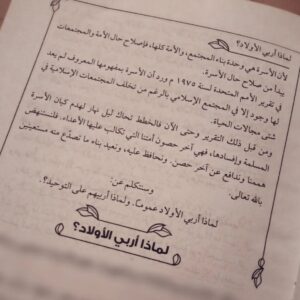 لماذا أربي الأولاد؟
لأن الأسرة هي وحدة بناء المجتمع، والأمة كلها، فإصلاح حال الأمة والمجتمعات
يبدأ من صلاح حال الأسرة.
في تقرير الأمم المتحدة لسنة ١٩٧٥ م ورد أن الأسرة بمفهومها المعروف لم يعد
لها وجود إلا في المجتمع الإسلامي بالرغم من تخلف المجتمعات الإسلامية في
شتى مجالات الحياة.
ومن قبل ذلك التقرير وحتى الآن فالخطط تحاك ليل نهار لهدم كيان الأسرة
المسلمة وإفسادها، فهي آخر حصون أمتنا التي تكالب عليها الأعداء. فلنستنهض
هممنا وندافع عن آخر حصن. ونحافظ عليه، ونعيد بناء ما تصدّع منه مستعينين
بالله تعالى.
وسنتكلم عن:
لماذا أربي الأولاد عمومًا. ولماذا أربيهم على التوحيد؟.
لماذا أربي الأولاد؟